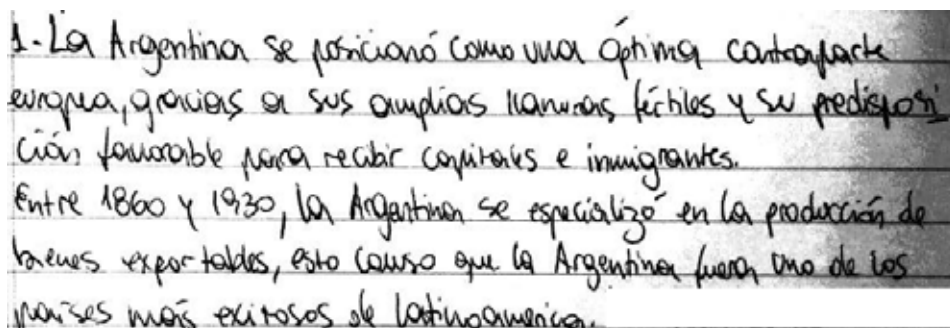 1-La Argentina se posicionó como una óptima contraparte
europea, gracias a sus amplias llanuras fértiles y su predisposi
ción favorable para recibir capitales e inmigrantes.
Entre 1860 y 1930, la Argentina se especializó en la producción de
bienes exportables, esto causo que la Argentina fuera uno de los
países más exitosos de latinoamerica.